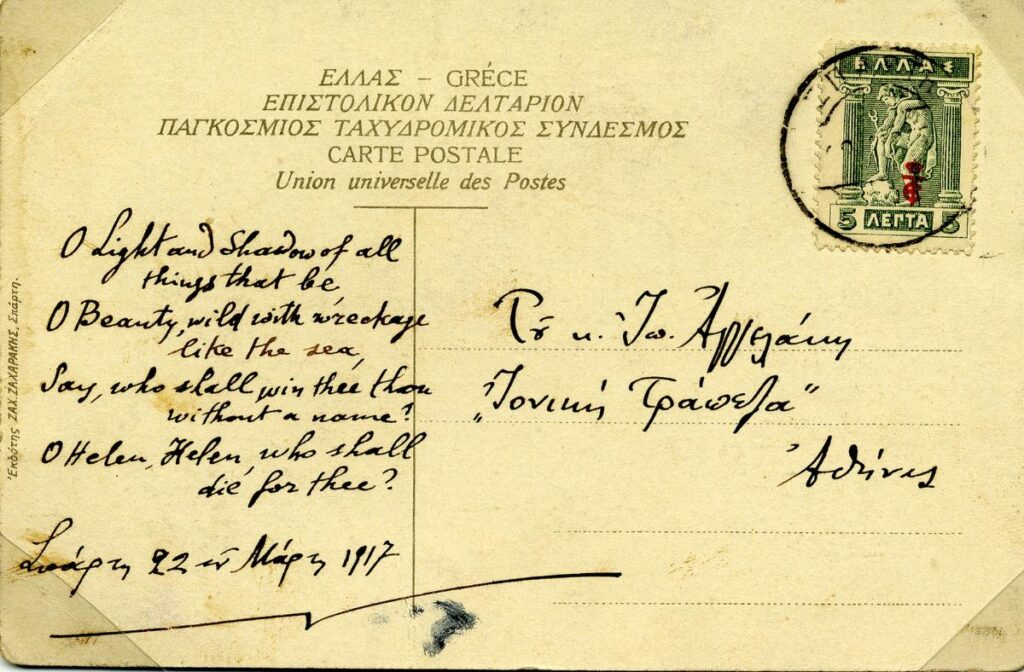 ΕΛΛΑΣ – GRÉCE
ΕΠΙΣΤΟΛΙΚΟΝ ΔΕΛΤΑΡΙΟΝ
ΠΑΓΚΟΣΜΙΟΣ ΤΑΧΥΔΡΟΜΙΚΟΣ ΣΥΝΔΕΣΜΟΣ
CARTE POSTALE
Union universelle des Postes
ΕΛΛΑΣ
5 ΛΕΠΤΑ 5
O Light and Shadow of all
things that be
O Beauty, wild with wreckage
like the sea,
Say, who shall win thee thou
without a name?
O Helen, Helen, who shall
die for thee?
Σπάρτη 22 Μάρτη 1917
κ. Ἰω. Ἀγγελάκη
„Ἰονική Τράπεζα"
Ἀθήνες
Ἐκδότης ΖΑΧ. ΖΑΧΑΡΑΚΗΣ, Σπάρτη.